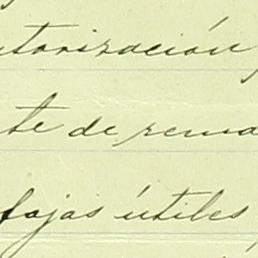 utorización
te de rema
fojas útiles